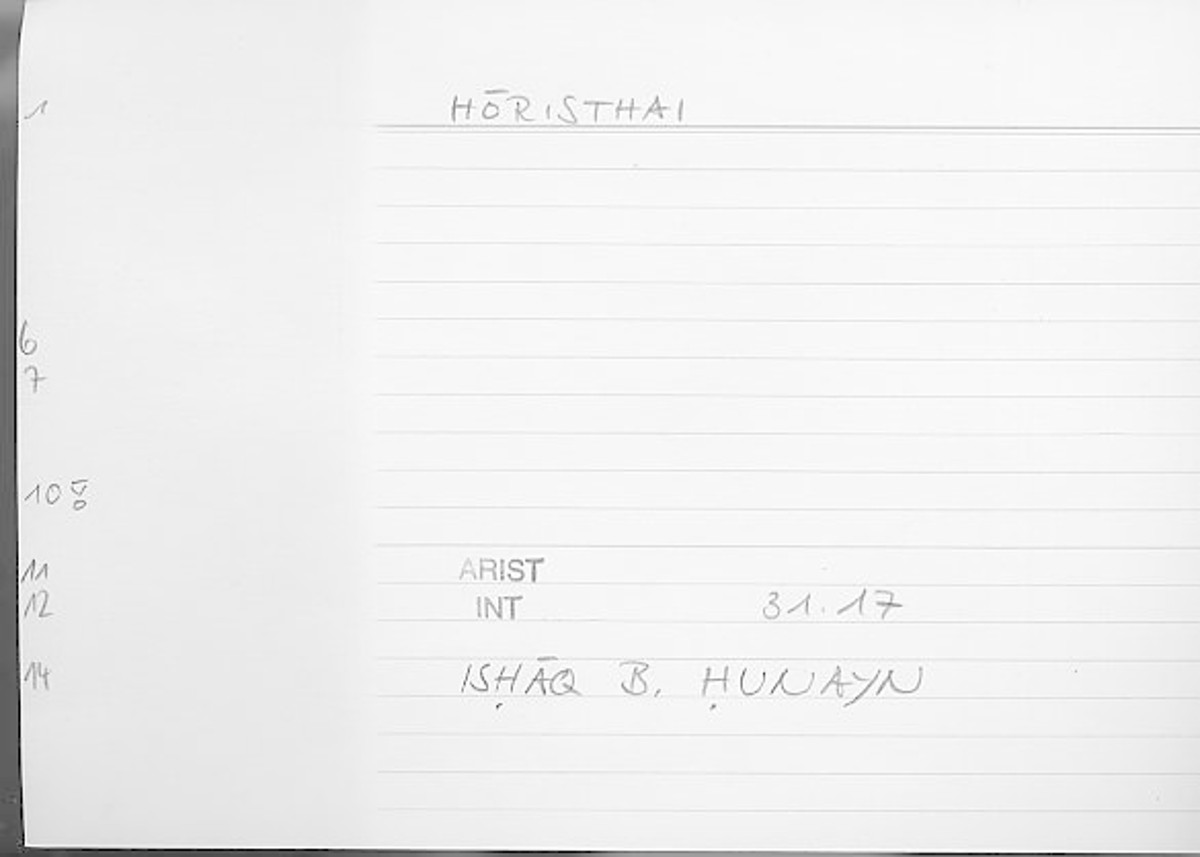 1 HŌRISTHAI
6
7
10
11 ARIST
12 INT 31.17
14 ISḤĀQ B. ḤUNAYN